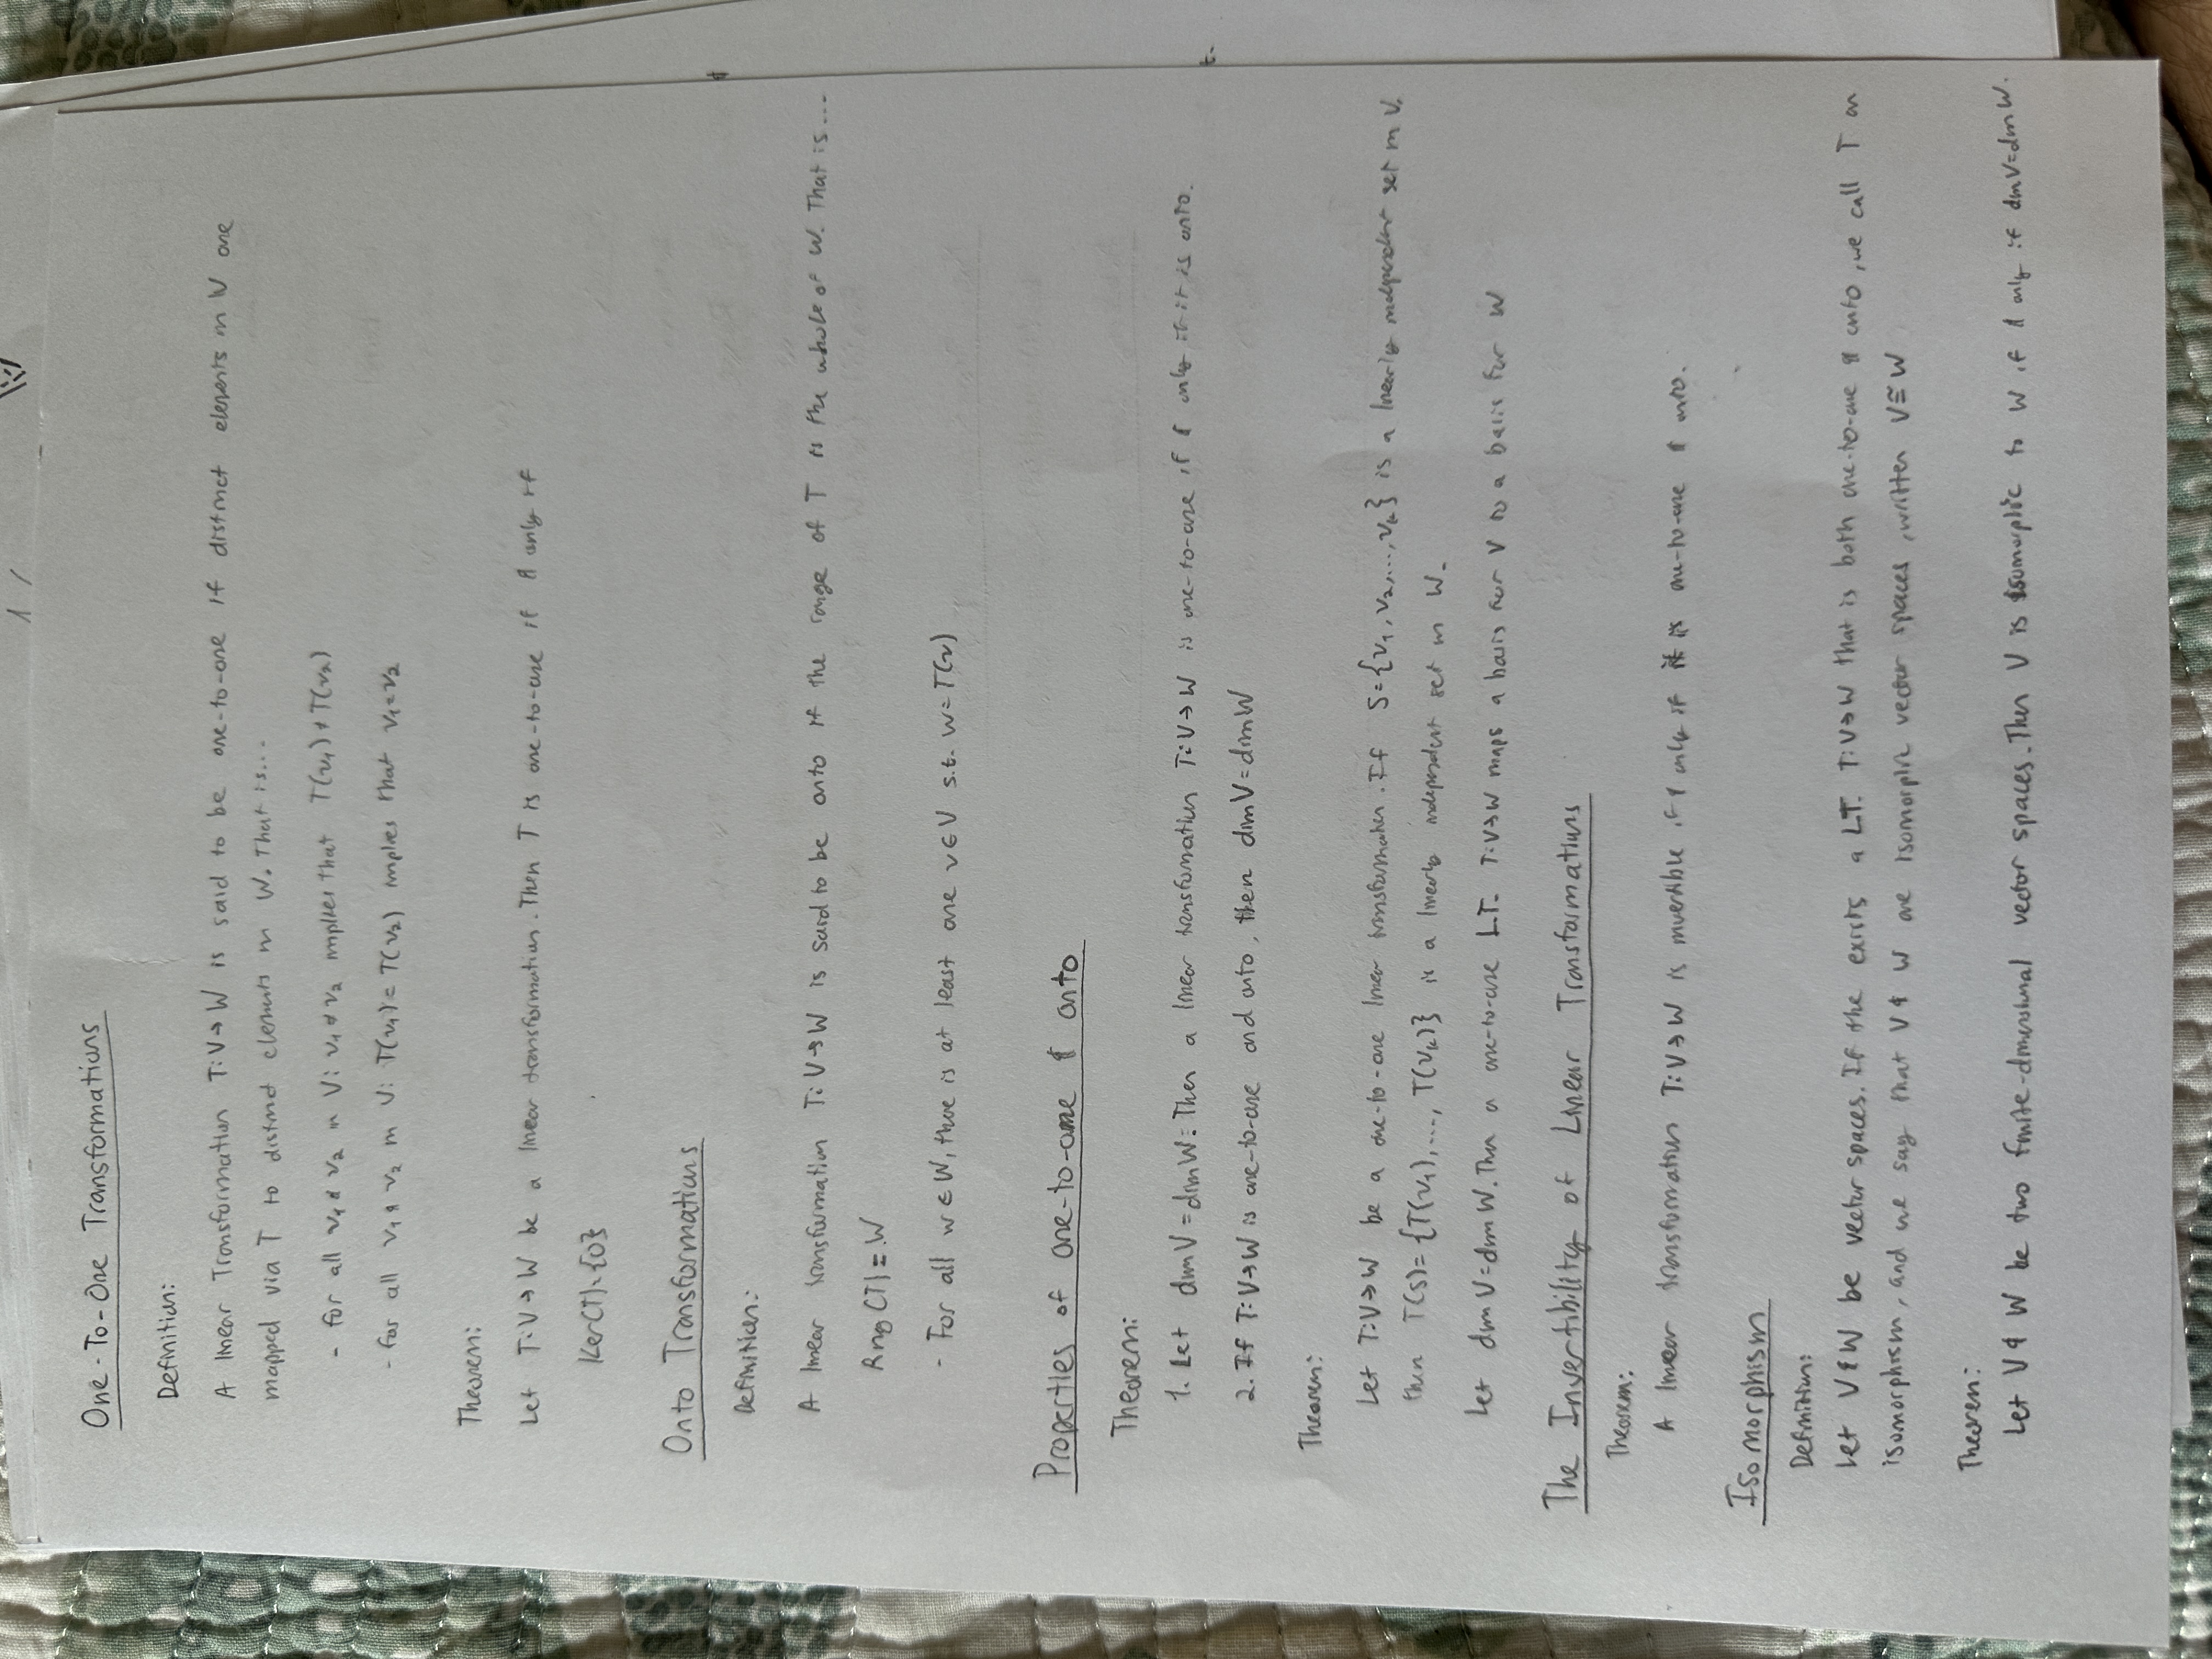 One-To-One Transformations
Definition:
A linear Transformation T:V→W is said to be one-to-one if distinct elements in V are
mapped via T to distinct elements in W. That is...
- for all v₁ & v₂ in V: v₁ ≠ v₂ implies that T(v₁) ≠ T(v₂)
- for all v₁ & v₂ in V: T(v₁) = T(v₂) implies that v₁ = v₂
Theorem:
Let T:V→W be a linear transformation. Then T is one-to-one if & only if
Ker(T) = {0}
Onto Transformations
Definition:
A linear transformation T:V→W is said to be onto if the range of T is the whole of W. That is...
Rng(T) = W
- For all w ∈ W, there is at least one v ∈ V s.t. w = T(v)
Properties of one-to-one & onto
Theorem:
1. Let dim V = dim W. Then a linear transformation T:V→W is one-to-one if & only if it is onto.
2. If T:V→W is one-to-one and onto, then dim V = dim W
Theorem:
Let T:V→W be a one-to-one linear transformation. If S = {v₁, v₂, ..., vₖ} is a linearly independent set in V,
then T(S) = {T(v₁), ..., T(vₖ)} is a linearly independent set in W.
Let dim V = dim W. Then a one-to-one L.T. T:V→W maps a basis for V to a basis for W
The Invertibility of Linear Transformations
Theorem:
A linear transformation T:V→W is invertible if & only if it is one-to-one & onto.
Isomorphism
Definition:
Let V & W be vector spaces. If the exists a LT. T:V→W that is both one-to-one & onto, we call T an
isomorphism, and we say that V & W are isomorphic vector spaces, written V ≅ W
Theorem:
Let V & W be two finite-dimensional vector spaces. Then V is isomorphic to W if & only if dim V = dim W.